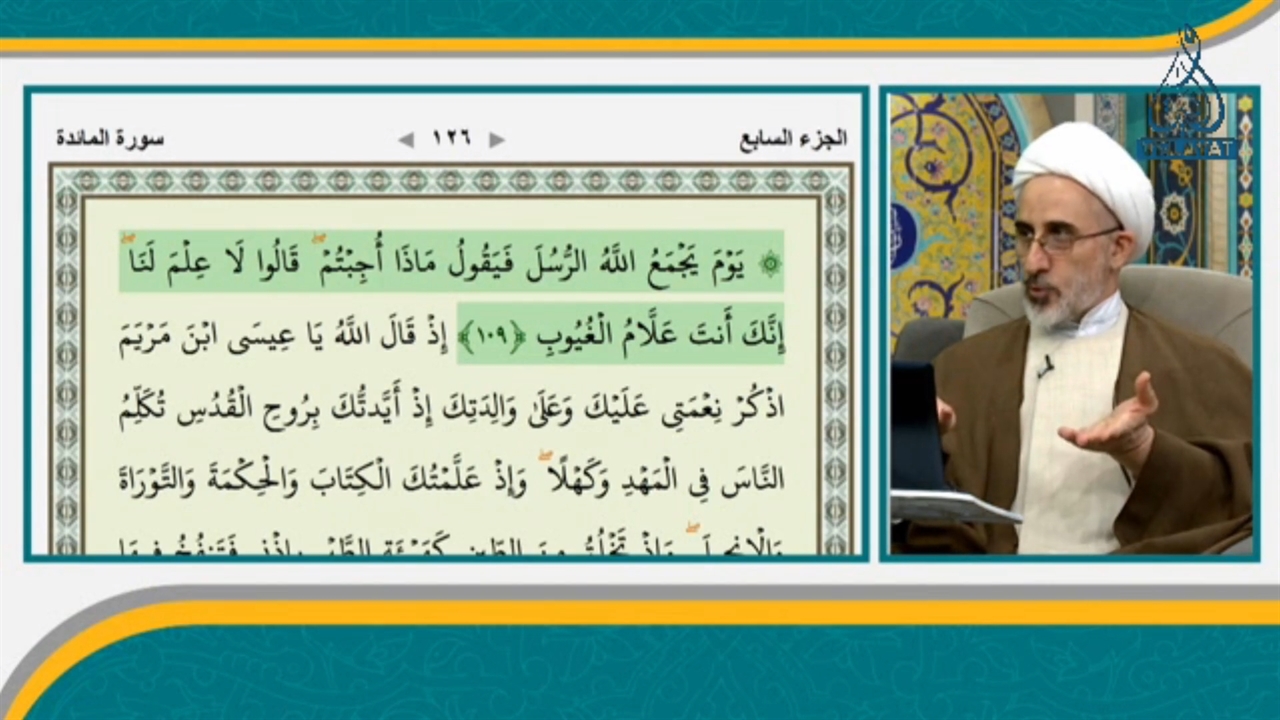 الجزء السابع
١٢٦
سورة المائدة
يَوْمَ يَجْمَعُ اللَّهُ الرُّسُلَ فَيَقُولُ مَاذَا أُجِبْتُمْ ۖ قَالُوا لَا عِلْمَ لَنَا ۖ
إِنَّكَ أَنتَ عَلَّامُ الْغُيُوبِ ﴿١٠٩﴾ إِذْ قَالَ اللَّهُ يَا عِيسَى ابْنَ مَرْيَمَ
اذْكُرْ نِعْمَتِي عَلَيْكَ وَعَلَىٰ وَالِدَتِكَ إِذْ أَيَّدتُّكَ بِرُوحِ الْقُدُسِ تُكَلِّمُ
النَّاسَ فِي الْمَهْدِ وَكَهْلًا ۖ وَإِذْ عَلَّمْتُكَ الْكِتَابَ وَالْحِكْمَةَ وَالتَّوْرَاةَ